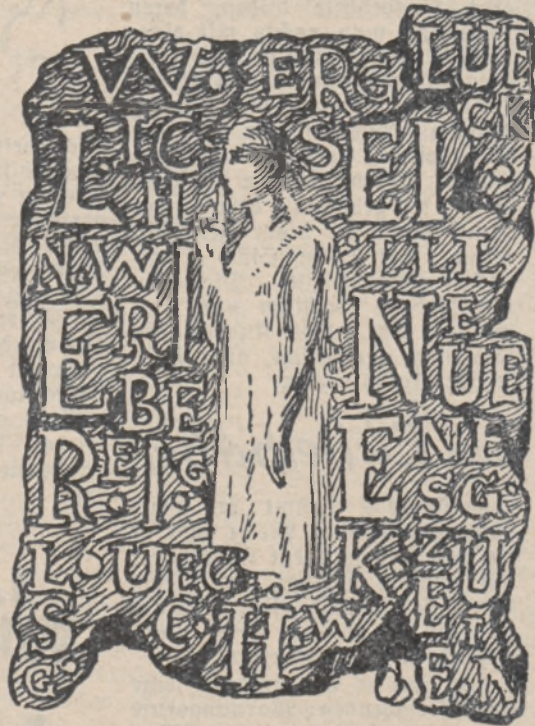 W. ERG LUE
CK
L. IC S EI.
H
N.WI .LLL
E RI N E
BE UE
R.E.I.G E NE
SG.
L.UEC K.ZU
S.C.H.W E T
G. E.N